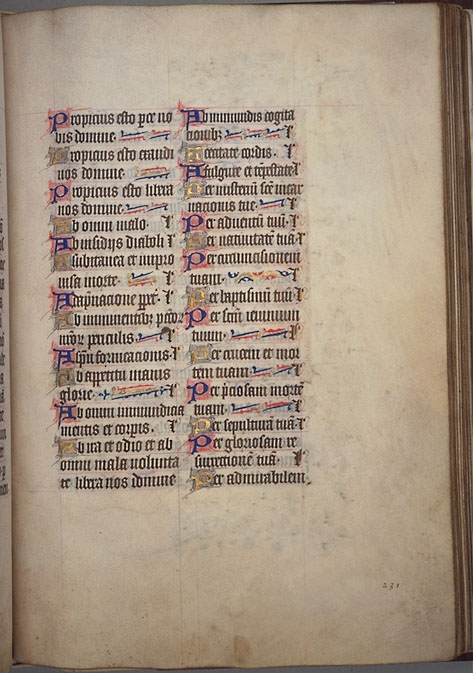 Propicius esto pce no
bis domine
Propicius esto exaudi
nos domine
Propicius esto libera
nos domine
Ab omni malo. l'
Ab insidijs diaboli l'
A subitanea et impro
uisa morte. l'
A dāpnacione ppe. l'
Ab imminentibz
periculis l'
A spū fornicacionis l'
Ab appetitu inanis
glorie.
Ab omni inmundicia
mentis et corpis. l'
Ab ira et odio et ab
omni mala volunta
te libera nos domine
Ab inmundis cogita
tionibz l'
A cecitate cordis. l'
A fulgure et tēpestate l'
Per misteriū scē incar
nacionis tue l'
Per aduentū tuū. l'
Per natiuitatē tuā l'
Per circumcisionem
tuam.
Per baptismū tuū l'
Per scm ieiunium
tuum. l'
Per crucem et mor
tem tuam l'
Per pciosam mortē
tuam. l'
Per sepulturā tuā l'
Per gloriosam re
surrectionē tuā. l'
Per admirabilem
231